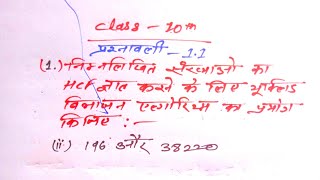 Class - 10th
प्रश्नावली - 1.1
(1.) निम्नलिखित संख्याओ का
HCF ज्ञात करने के लिए यूक्लिड
विभाजन एल्गोरिथ्म का प्रयोग
किजिए : -
(ii) 196 और 38220